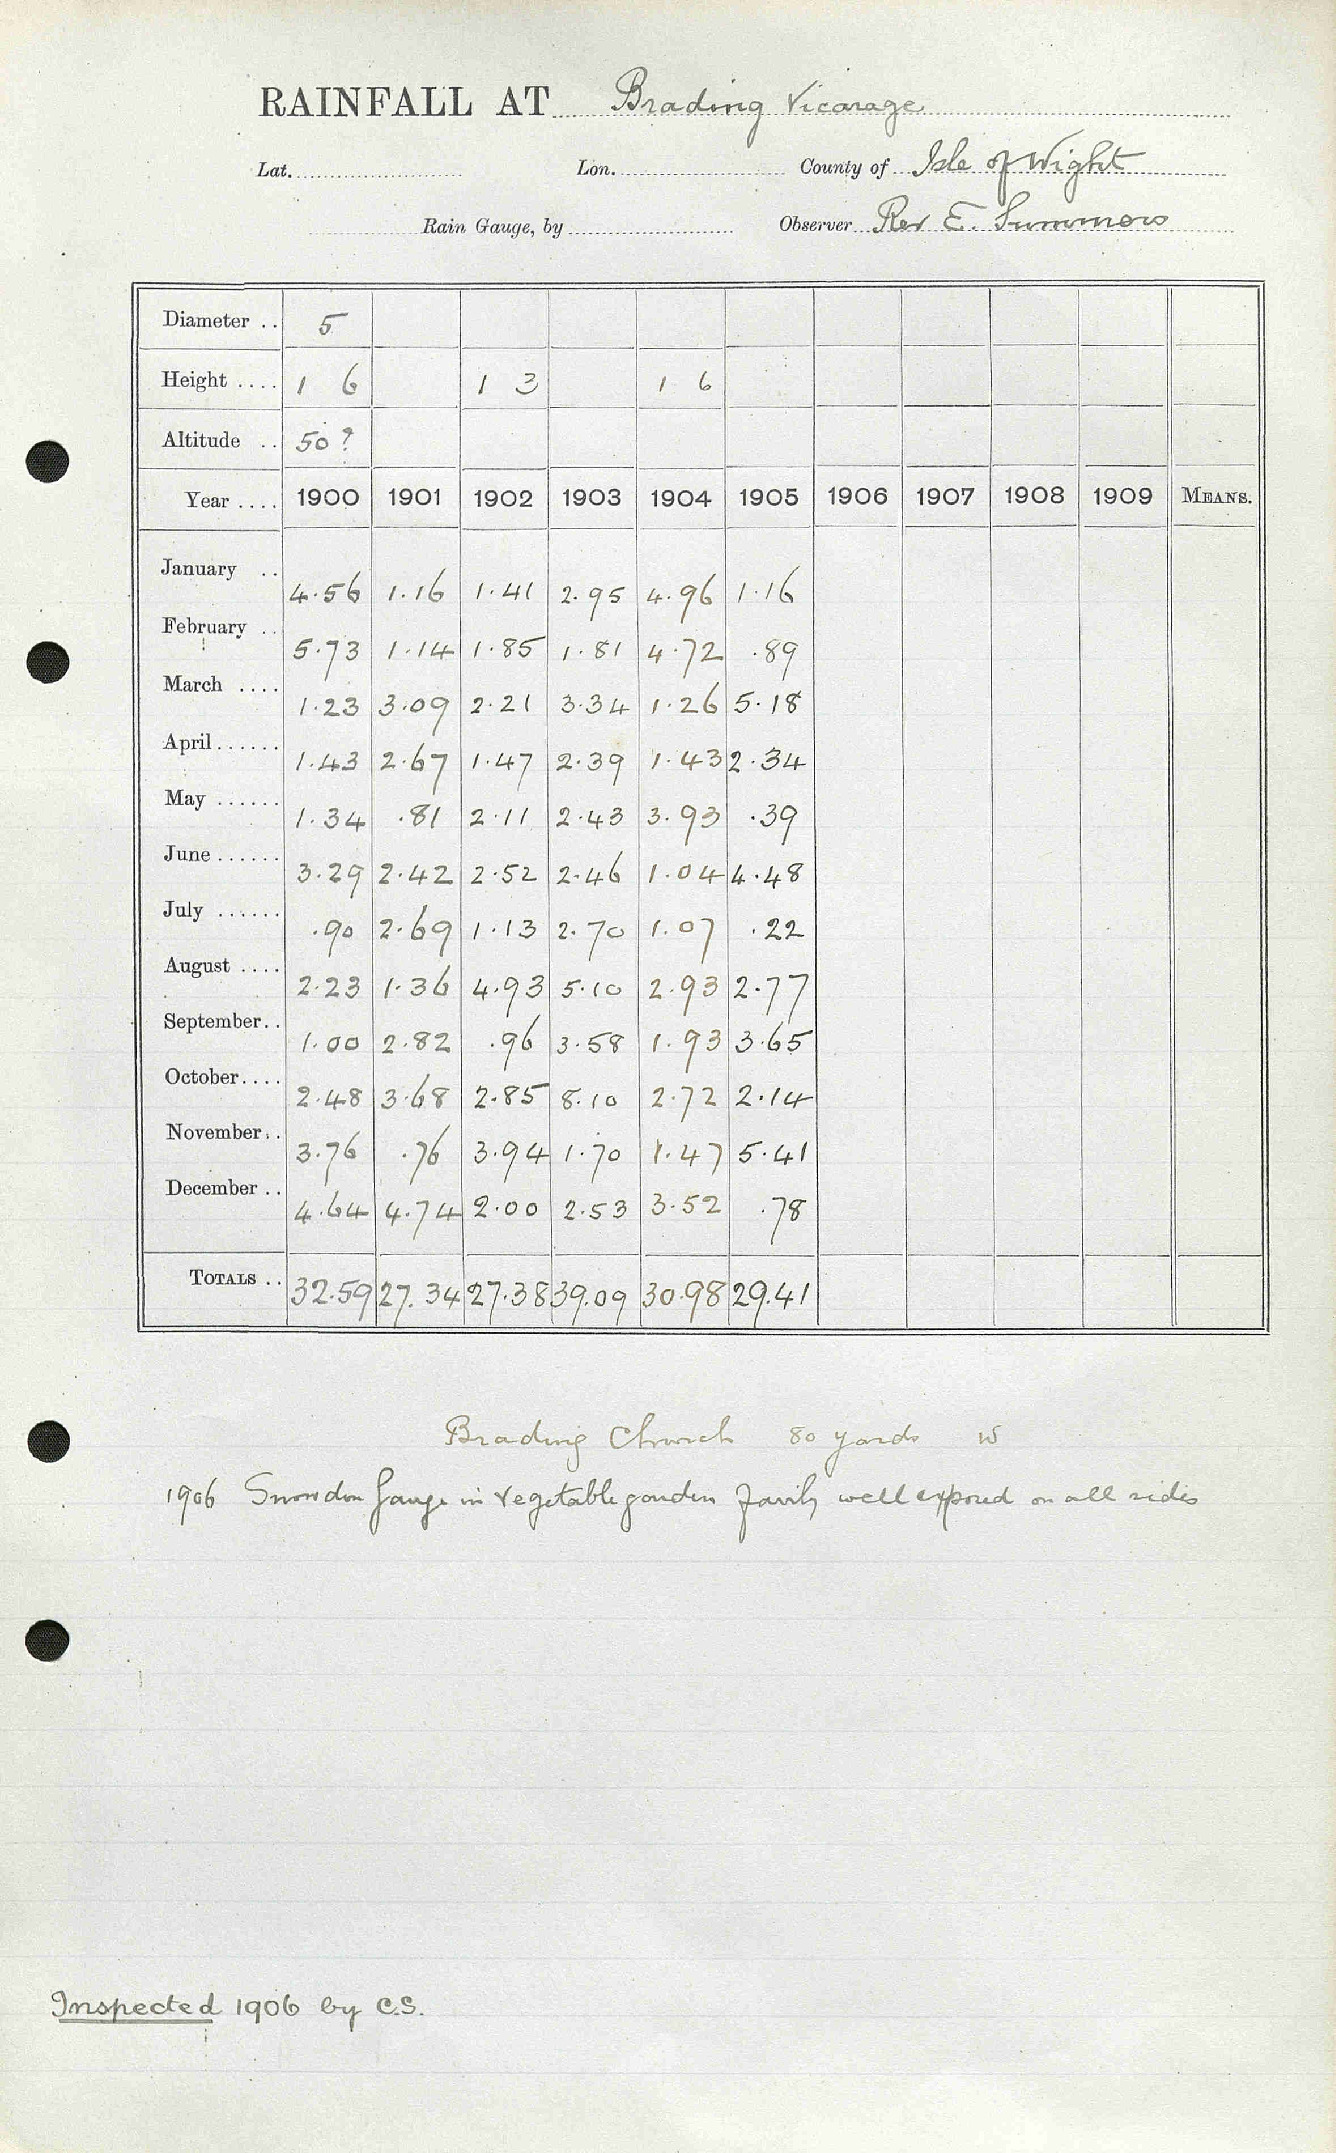 RAINFALL AT Brading Vicarage
Lat. Lon. County of Isle of Wight
Rain Gauge, by Observer Rev E. Summers
Diameter .. 5
Height .... 1 6 1 3 1 6
Altitude .. 50?
Year .... 1900 1901 1902 1903 1904 1905 1906 1907 1908 1909 MEANS.
January .. 4.56 1.16 1.41 2.95 4.96 1.16
February .. 5.73 1.14 1.85 1.81 4.72 .89
March .... 1.23 3.09 2.21 3.34 1.26 5.18
April...... 1.43 2.67 1.47 2.39 1.43 2.34
May ...... 1.34 .81 2.11 2.43 3.93 .39
June...... 3.29 2.42 2.52 2.46 1.04 4.48
July ...... .90 2.69 1.13 2.70 1.07 .22
August .... 2.23 1.36 4.93 5.10 2.93 2.77
September.. 1.00 2.82 .96 3.58 1.93 3.65
October.... 2.48 3.68 2.85 8.10 2.72 2.14
November.. 3.76 .76 3.94 1.70 1.47 5.41
December .. 4.64 4.74 2.00 2.53 3.52 .78
TOTALS .. 32.59 27.34 27.38 39.09 30.98 29.41
Brading Church 80 yards W
1906 Snowdon Gauge in vegetable garden fairly well exposed on all sides
Inspected 1906 by C.S.